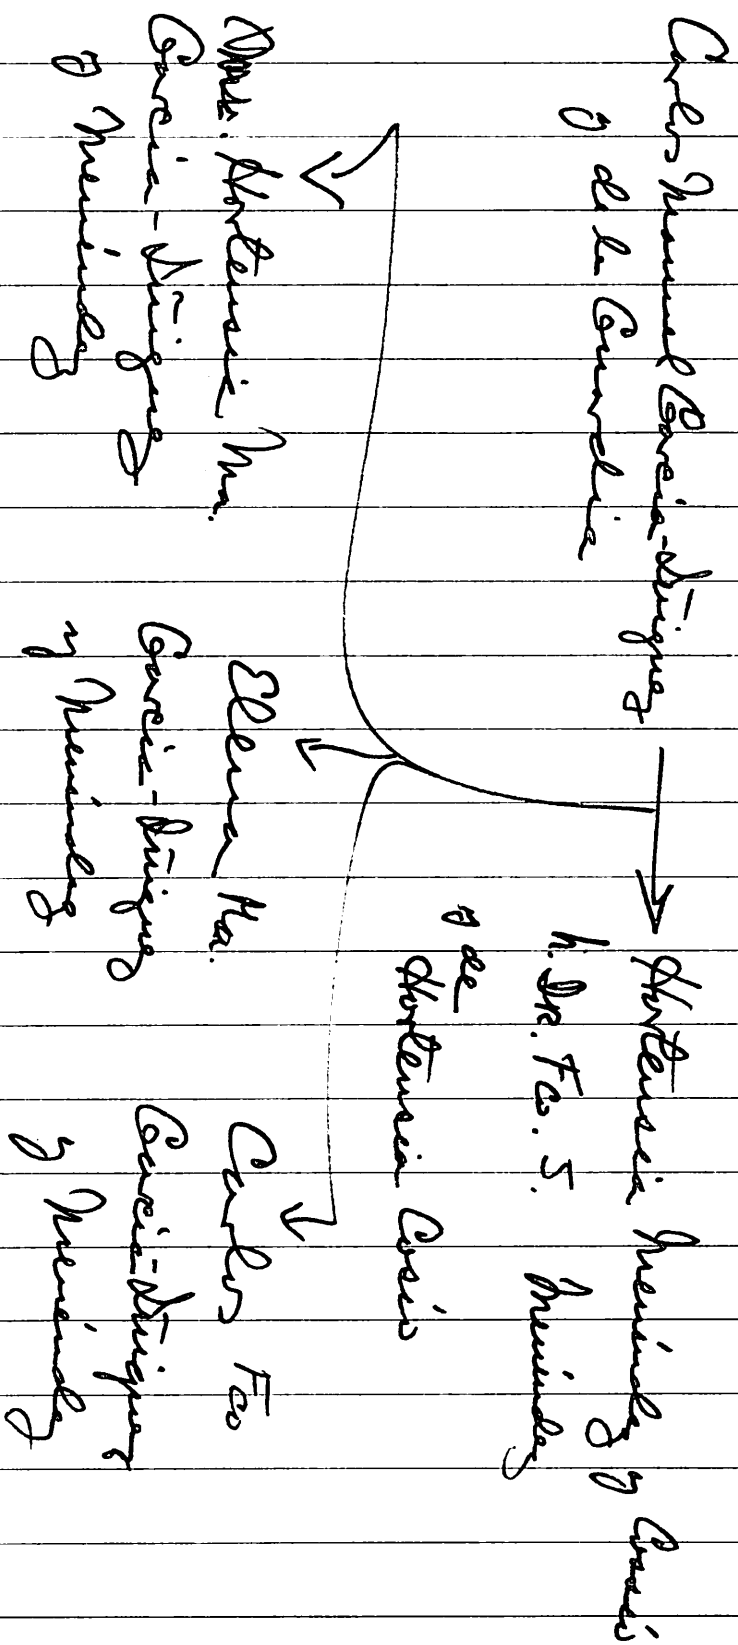 Carlos Manuel García-Iñiguez
y de la Guardia
Hortensia Menéndez y Cossío
h. Dr. Fco. S. Menéndez
y de Hortensia Cosío
Hortensia Ma.
García-Iñiguez
y Menéndez
Elena Ma.
García-Iñiguez
y Menéndez
Carlos Fco
García-Iñiguez
y Menéndez